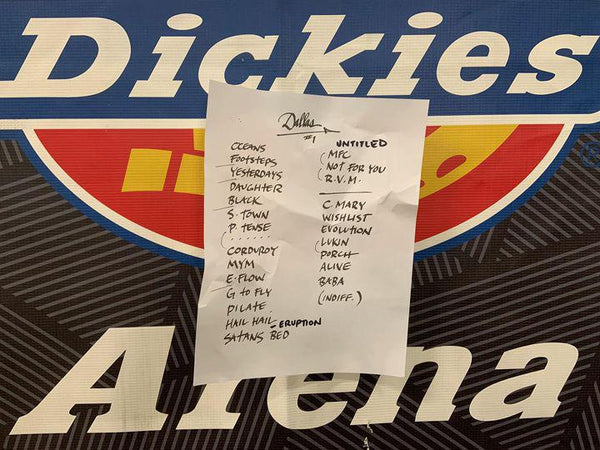 Dickies
®
Dallas
#1
OCEANS
FOOTSTEPS
YESTERDAYS
DAUGHTER
BLACK
S. TOWN
P. TENSE
(......
CORDUROY
MYM
E. FLOW
G TO FLY
DILATE
HAIL HAIL - ERUPTION
SATANS BED
UNTITLED
MFC
NOT FOR YOU
R.V.M.
C. MARY
WISHLIST
EVOLUTION
LUKIN
PORCH
ALIVE
BABA
(INDIFF.)
Arena